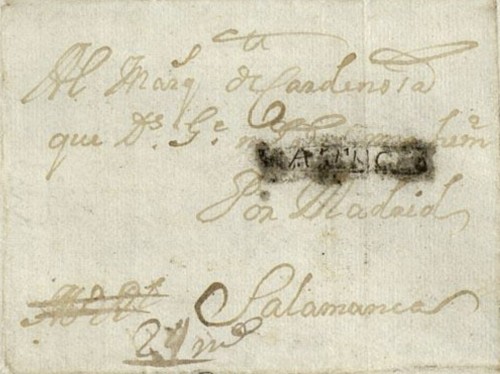 Al Marq.s de Cardenosa
que Ds. Ge. m.s
Por Madrid
Salamanca
24